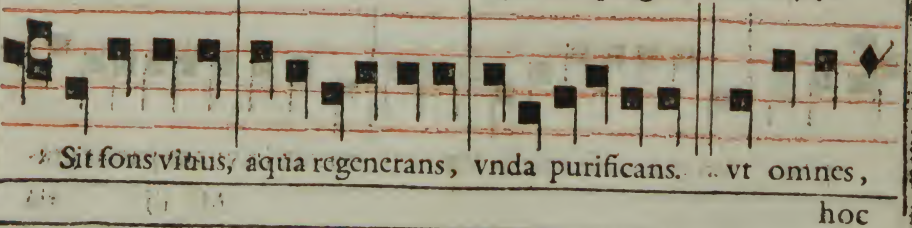 Sit fons viuus, aqua regenerans, vnda purificans. vt omnes,
hoc